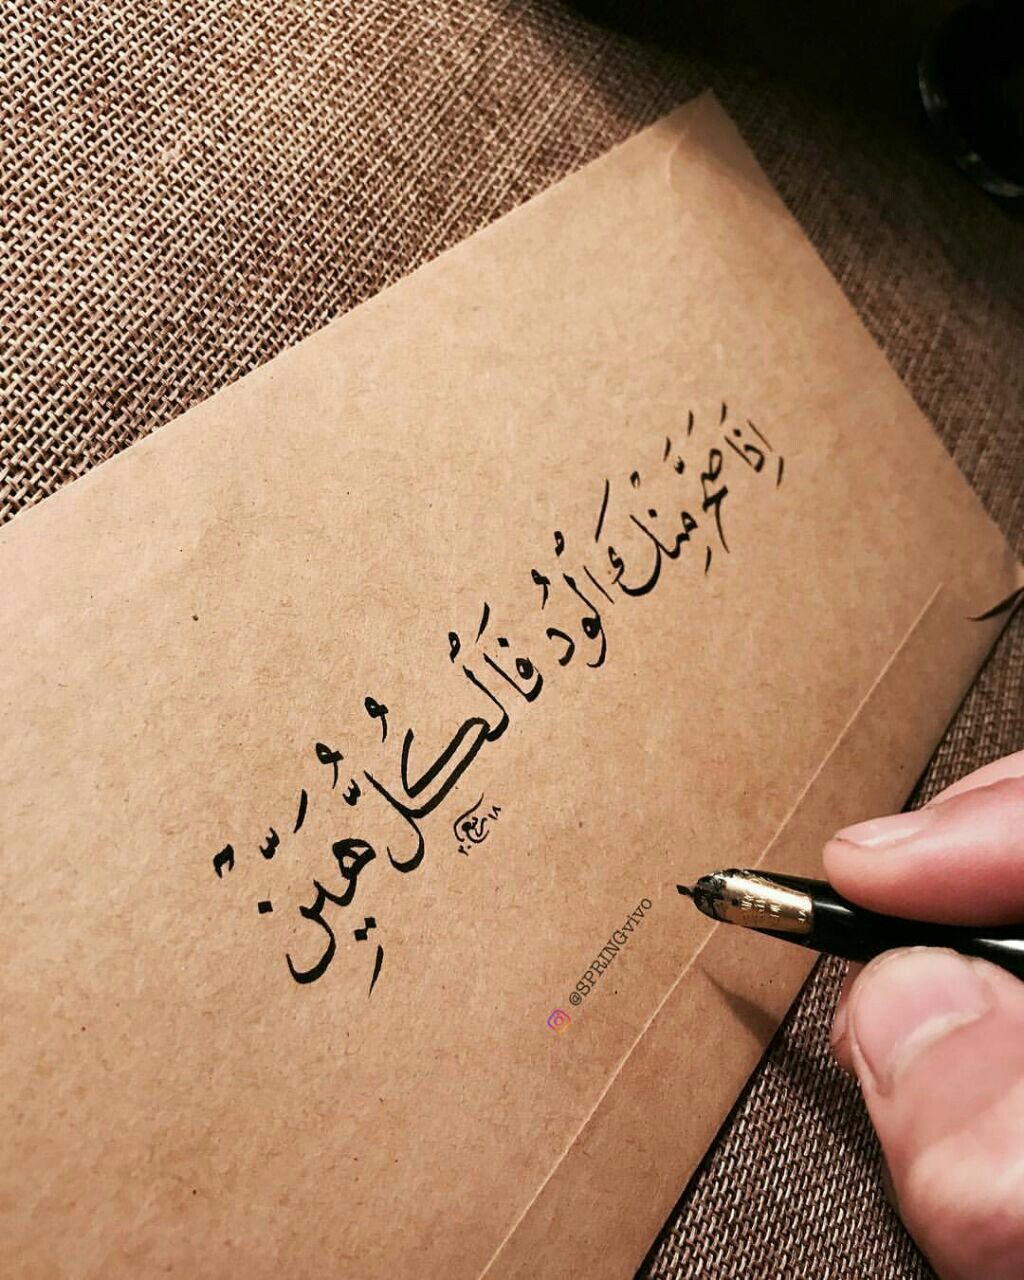 إِذَا صَحَّ مِنْكَ الْوُدُّ فَالْكُلُّ هَيِّنٌ
ربيع ٢٠١٨
@SPRINGvivo